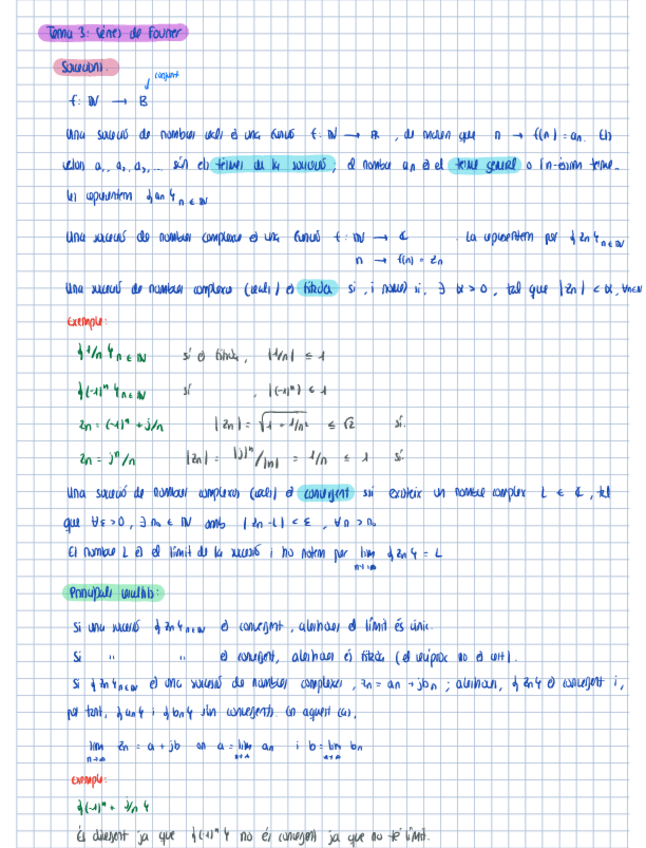 Tema 3: Sèries de Fourier
Successions.
conjunt
f: ℕ → B
Una successió de nombres reals és una funció f: ℕ → ℝ, de manera que n → f(n) = an. Els
valors a₁, a₂, a₃, ... són els termes de la successió; el nombre an és el terme general o n-èssim terme.
La representem {an}n∈ℕ
Una successió de nombres complexos és una funció f: ℕ → ℂ . La representem per {zn}n∈ℕ
n → f(n) = zn
Una successió de nombres complexos (reals) és fitada si, i només si, ∃ α > 0, tal que |zn| < α, ∀n∈ℕ
Exemple:
{1/n}n∈ℕ sí és fitada, |1/n| ≤ 1
{(-1)ⁿ}n∈ℕ sí , |(-1)ⁿ| ≤ 1
zn = (-1)ⁿ + j/n |zn| = √(1 + 1/n²) ≤ √2 sí.
zn = jⁿ/n |zn| = |j|ⁿ/|n| = 1/n ≤ 1 sí.
Una successió de nombres complexos (reals) és convergent ssi existeix un nombre complex L ∈ ℂ, tal
que ∀ε>0, ∃ n₀ ∈ ℕ amb |zn - L| < ε, ∀n > n₀
El nombre L és el límit de la successió i ho notem per lim n→∞ {zn} = L
Principals resultats:
Si una successió {zn}n∈ℕ és convergent, aleshores el límit és únic.
Si " " és convergent, aleshores és fitada (el recíproc no és cert).
Si {zn}n∈ℕ és una successió de nombres complexos, zn = an + jbn; aleshores, {zn} és convergent i,
per tant, {an} i {bn} són convergents. En aquest cas,
lim n→∞ zn = a + jb on a = lim n→∞ an i b = lim n→∞ bn
Exemple:
{(-1)ⁿ + j/n}
És divergent ja que {(-1)ⁿ} no és convergent ja que no té límit.